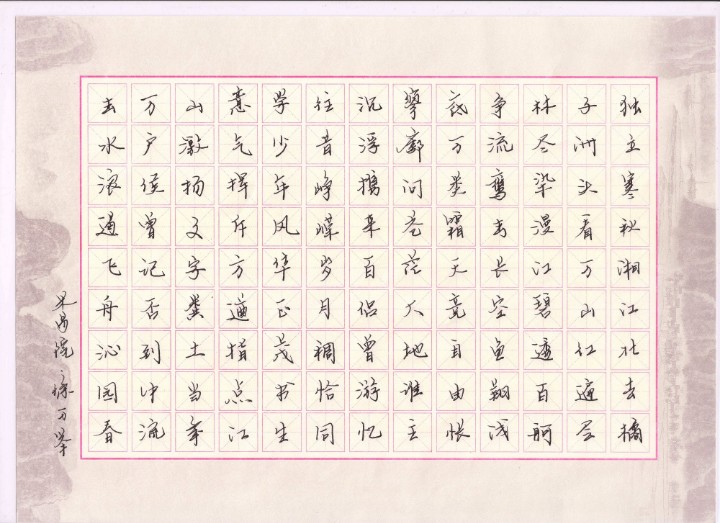 独立寒秋湘江北去橘
子洲头看万山红遍层
林尽染漫江碧透百舸
争流鹰击长空鱼翔浅
底万类霜天竞自由怅
寥廓问苍茫大地谁主
沉浮携来百侣曾游忆
往昔峥嵘岁月稠恰同
学少年风华正茂书生
意气挥斥方遒指点江
山激扬文字粪土当年
万户侯曾记否到中流
击水浪遏飞舟沁园春